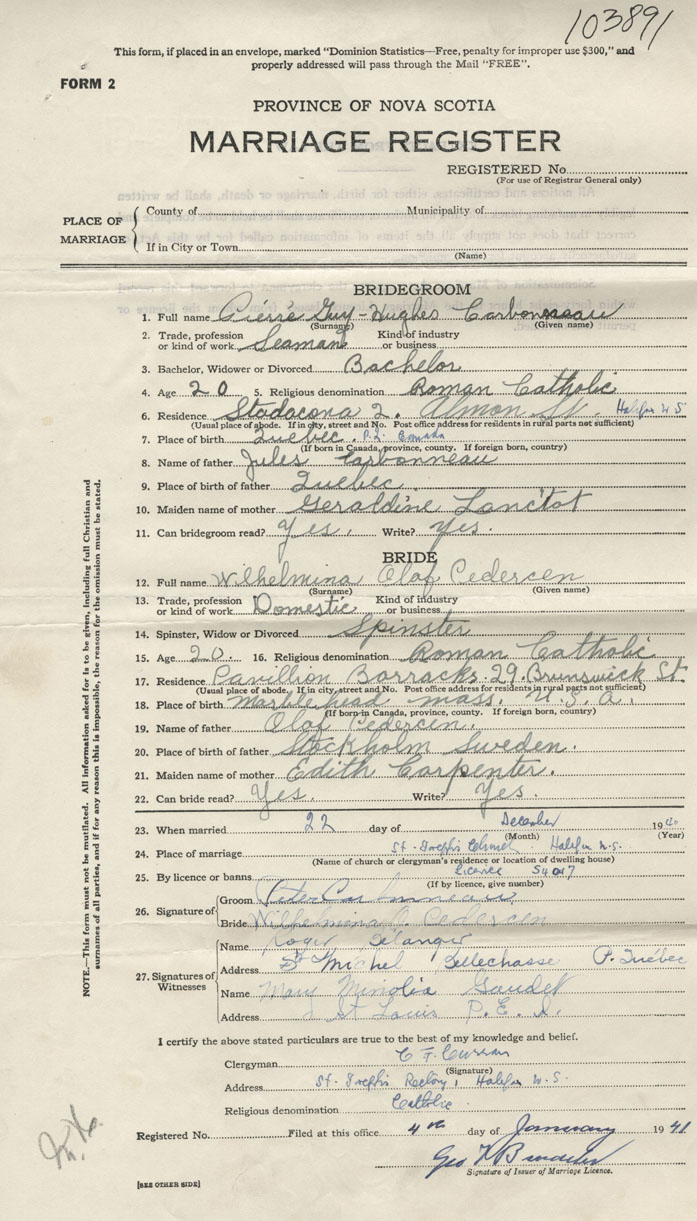 103891
This form, if placed in an envelope, marked "Dominion Statistics—Free, penalty for improper use $300," and
properly addressed will pass through the Mail "FREE".
FORM 2
PROVINCE OF NOVA SCOTIA
MARRIAGE REGISTER
REGISTERED No.
(For use of Registrar General only)
PLACE OF MARRIAGE
County of Municipality of
If in City or Town
(Name)
BRIDEGROOM
1. Full name Pierre Guy-Hughes Carbonneau
(Surname) (Given name)
2. Trade, profession or kind of work Seaman Kind of industry or business
3. Bachelor, Widower or Divorced Bachelor
4. Age 20 5. Religious denomination Roman Catholic
6. Residence Stadacona 2. Almon St. Halifax N S
(Usual place of abode. If in city, street and No. Post office address for residents in rural parts not sufficient)
7. Place of birth Quebec. P.Q. Canada
(If born in Canada, province, county. If foreign born, country)
8. Name of father Jules Carbonneau
9. Place of birth of father Quebec.
10. Maiden name of mother Geraldine Lanctot
11. Can bridegroom read? Yes. Write? Yes.
BRIDE
12. Full name Wilhelmina Olaf Pedercen
(Surname) (Given name)
13. Trade, profession or kind of work Domestic Kind of industry or business
14. Spinster, Widow or Divorced Spinster
15. Age 20. 16. Religious denomination Roman Catholic
17. Residence Pavillion Barracks. 29. Brunswick St.
(Usual place of abode. If in city, street and No. Post office address for residents in rural parts not sufficient)
18. Place of birth Marblehead mass. U.S.A.
(If born in Canada, province, county. If foreign born, country)
19. Name of father Olaf Pedercen.
20. Place of birth of father Stockholm Sweden.
21. Maiden name of mother Edith Carpenter.
22. Can bride read? Yes. Write? Yes.
23. When married 22 day of December 1940
(Month) (Year)
24. Place of marriage St. Joseph's Halifax N.S.
(Name of church or clergyman's residence or location of dwelling house)
25. By licence or banns licence
(If by licence, give number)
26. Signature of
Groom Peter Carbonneau
Bride Wilhelmina O. Pedercen
27. Signatures of Witnesses
Name Roger Bélanger
Address St Michel Bellechasse P. Québec
Name Mary Gaudet
Address St Louis P.E.I.
I certify the above stated particulars are true to the best of my knowledge and belief.
Clergyman C F Curran
(Signature)
Address St. Joseph's Rectory, Halifax N.S.
Religious denomination Catholic
Registered No. Filed at this office 4th day of January 1941
Geo
Signature of Issuer of Marriage Licence.
[SEE OTHER SIDE]
NOTE.—This form must not be mutilated. All information asked for is to be given, including full Christian and
surnames of all parties, and if for any reason this is impossible, the reason for the omission must be stated.